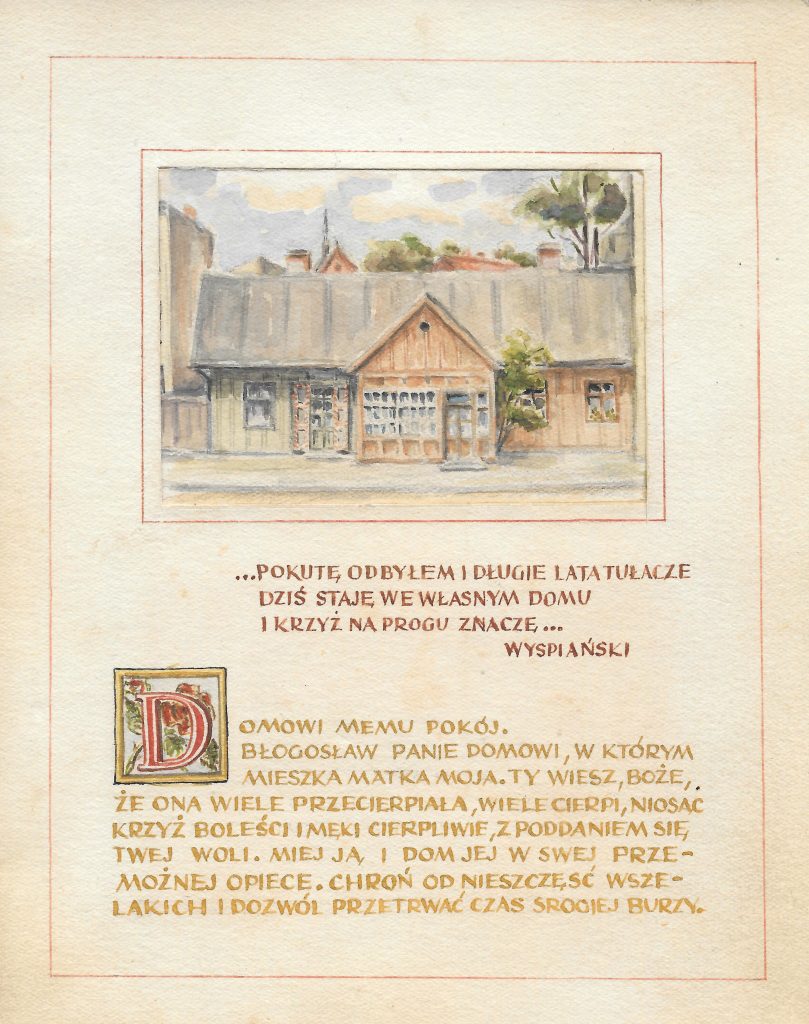 ...POKUTĘ ODBYŁEM I DŁUGIE LATA TUŁACZE
DZIŚ STAJĘ WE WŁASNYM DOMU
I KRZYŻ NA PROGU ZNACZĘ...
WYSPIAŃSKI
DOMOWI MEMU POKÓJ.
BŁOGOSŁAW PANIE DOMOWI, W KTÓRYM
MIESZKA MATKA MOJA. TY WIESZ, BOŻE,
ŻE ONA WIELE PRZECIERPIAŁA, WIELE CIERPI, NIOSĄC
KRZYŻ BOLEŚCI I MĘKI CIERPLIWIE, Z PODDANIEM SIĘ
TWEJ WOLI. MIEJ JĄ I DOM JEJ W SWEJ PRZE-
MOŻNEJ OPIECE. CHROŃ OD NIESZCZĘŚĆ WSZE-
LAKICH I DOZWÓL PRZETRWAĆ CZAS SROGIEJ BURZY.